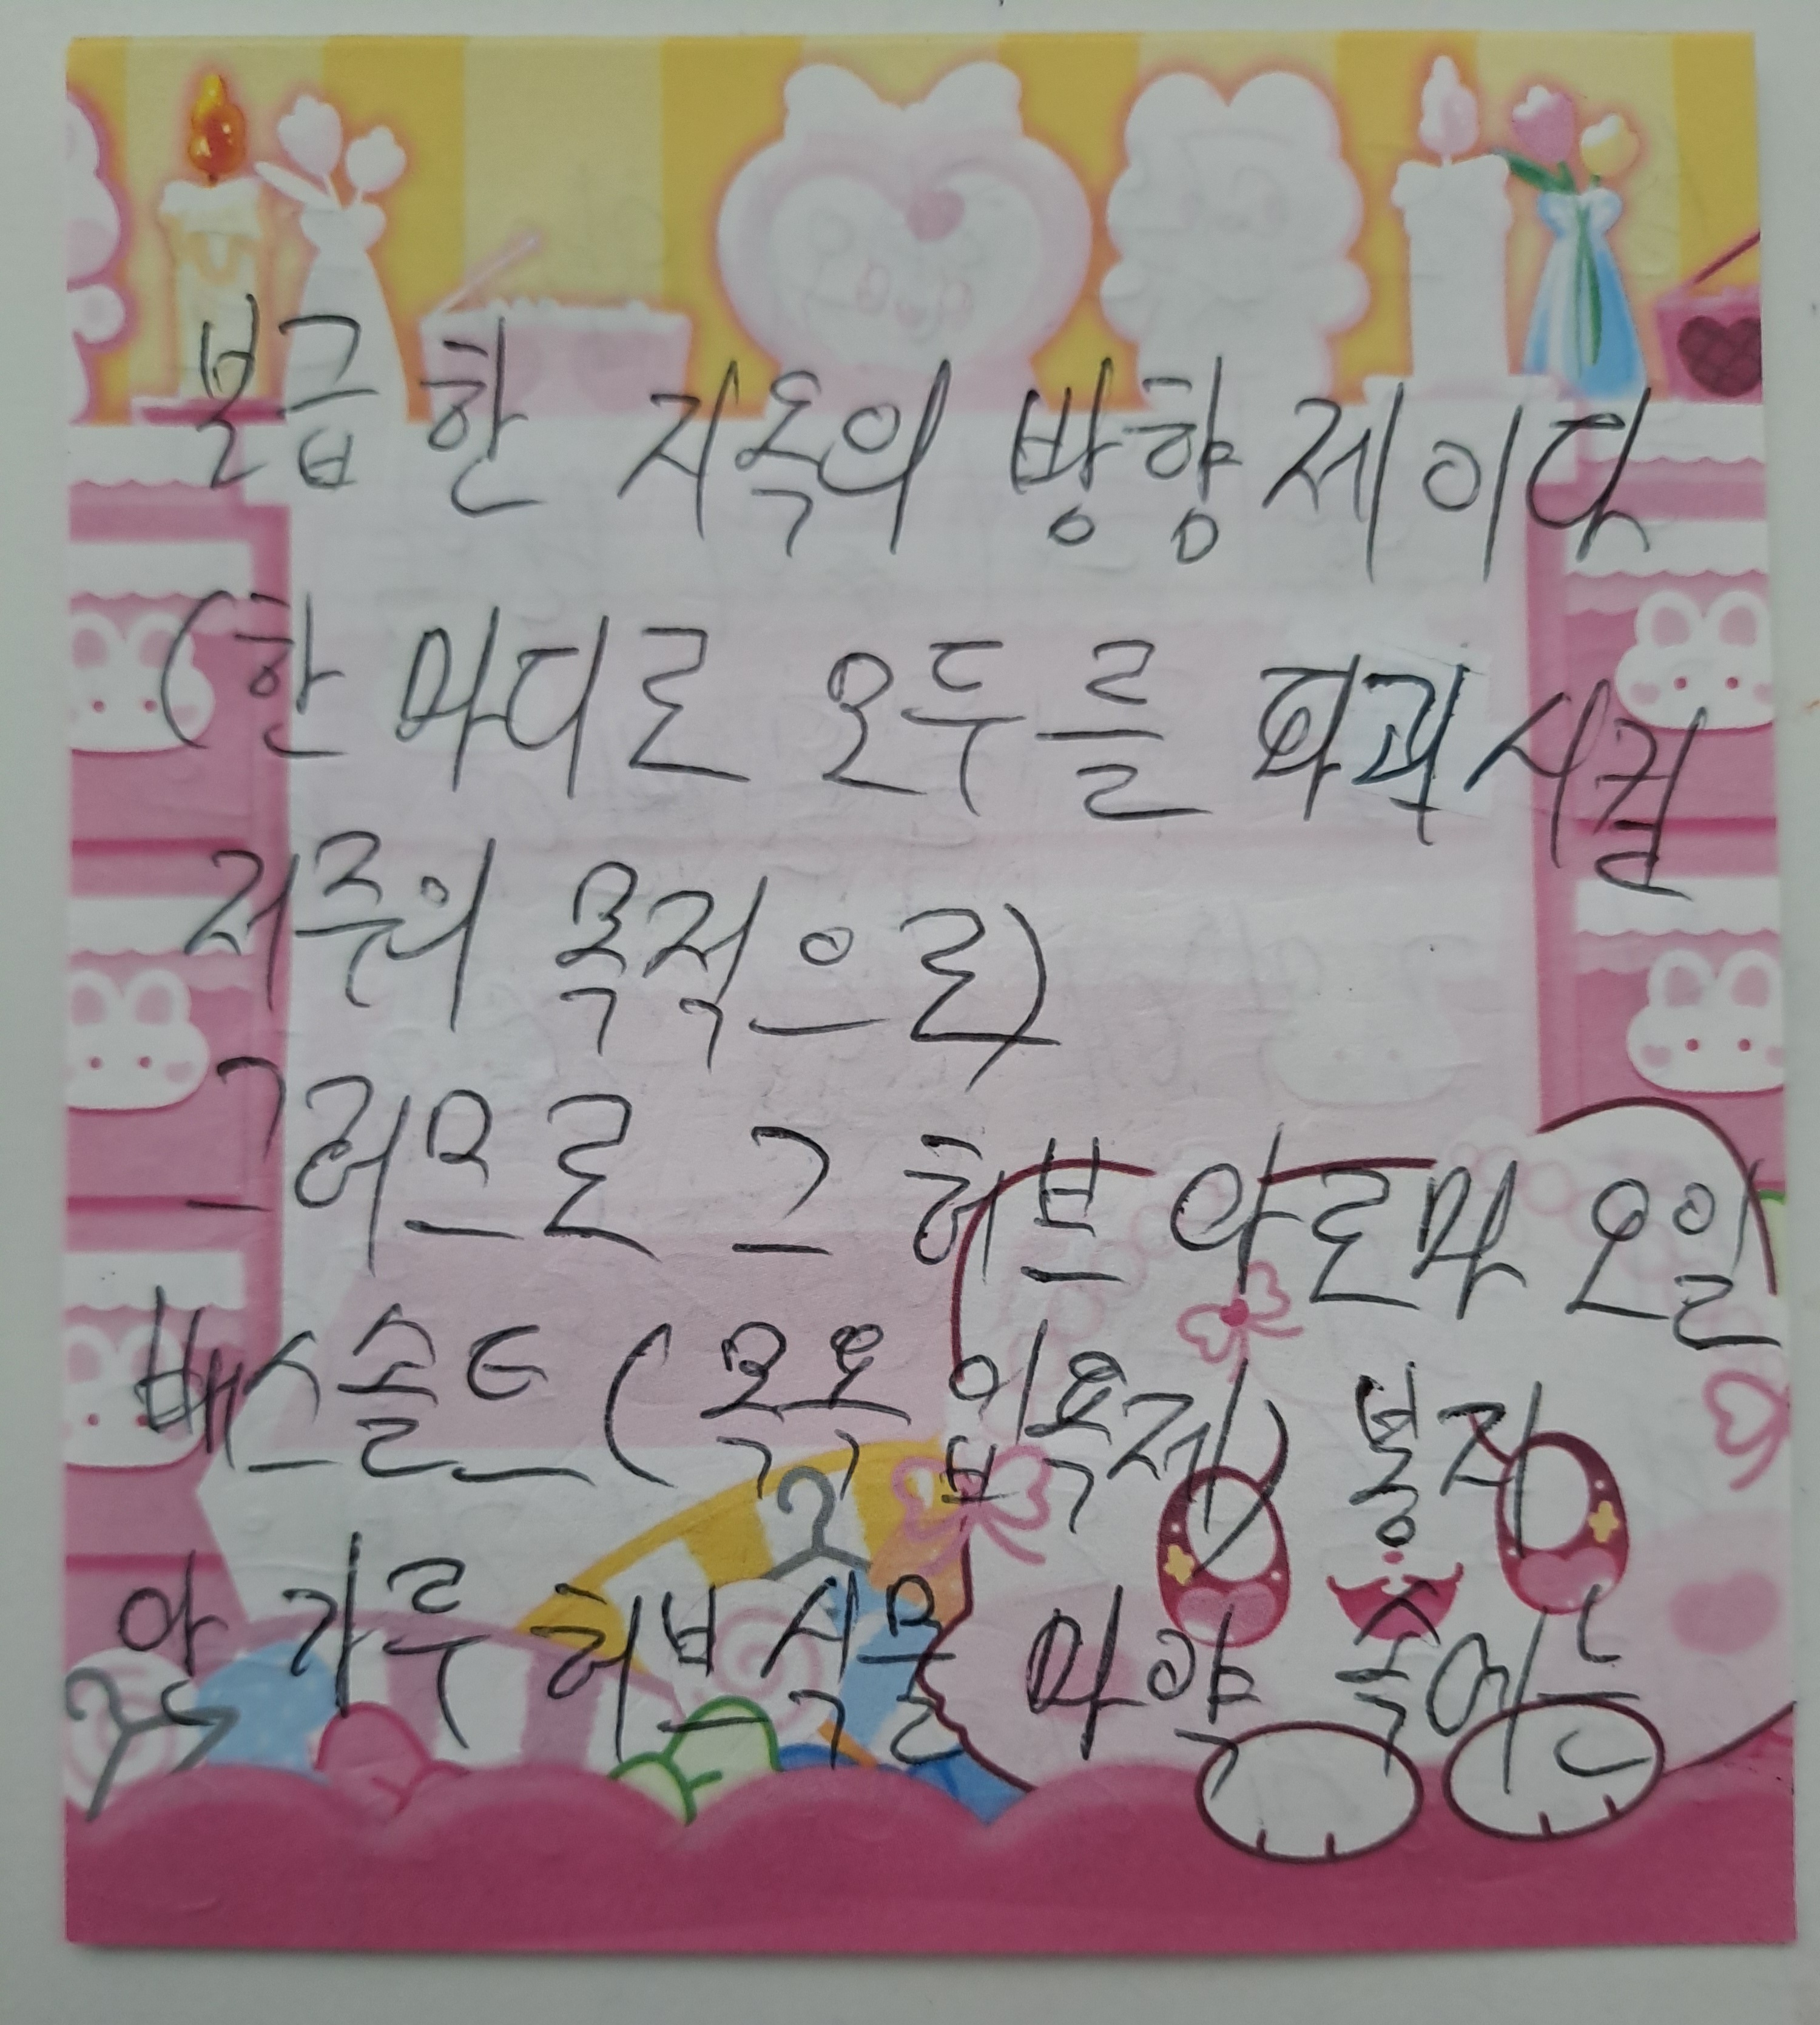 보급한 지옥의 방향제이다
(한 마디로 모두를 파괴시킬
저주의 목적으로)
그러므로 그 허브 아로마 오일
배스솔트(목욕 입욕제) 봉지
안 가루 허브식물 마약 속에는